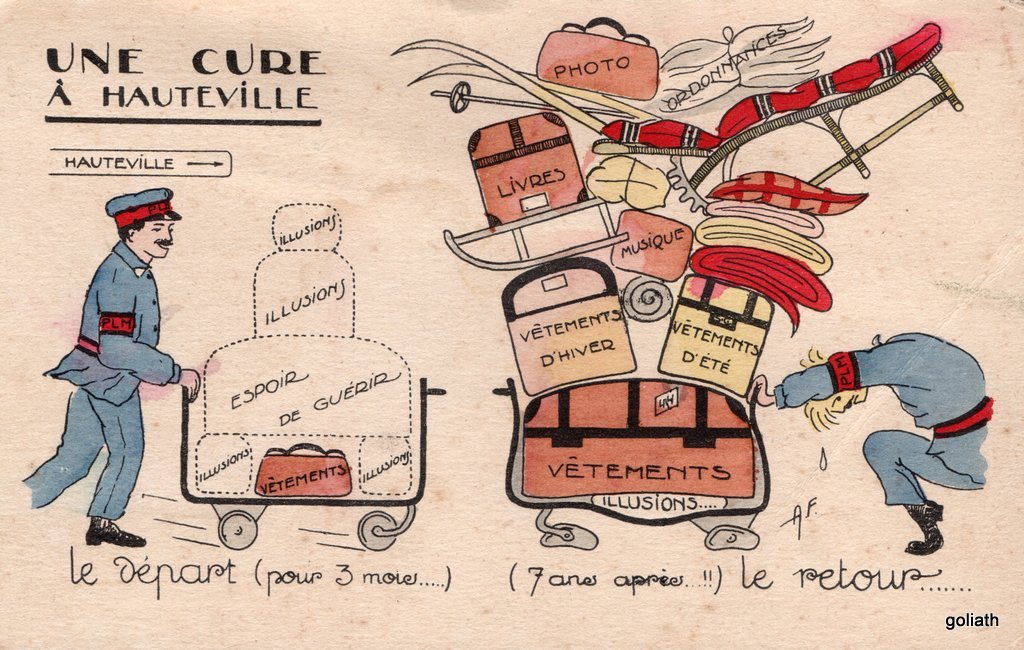 UNE CURE
À HAUTEVILLE
HAUTEVILLE
PLM
PLM
ILLUSIONS
ILLUSIONS
ESPOIR
DE GUÉRIR
ILLUSIONS
VÊTEMENTS
ILLUSIONS
le départ (pour 3 mois.....)
PHOTO
ORDONNANCES
LIVRES
MUSIQUE
VÊTEMENTS
D'HIVER
VÊTEMENTS
D'ÉTÉ
VÊTEMENTS
ILLUSIONS....
PLM
AF.
(7 ans après...!!) le retour.......
goliath